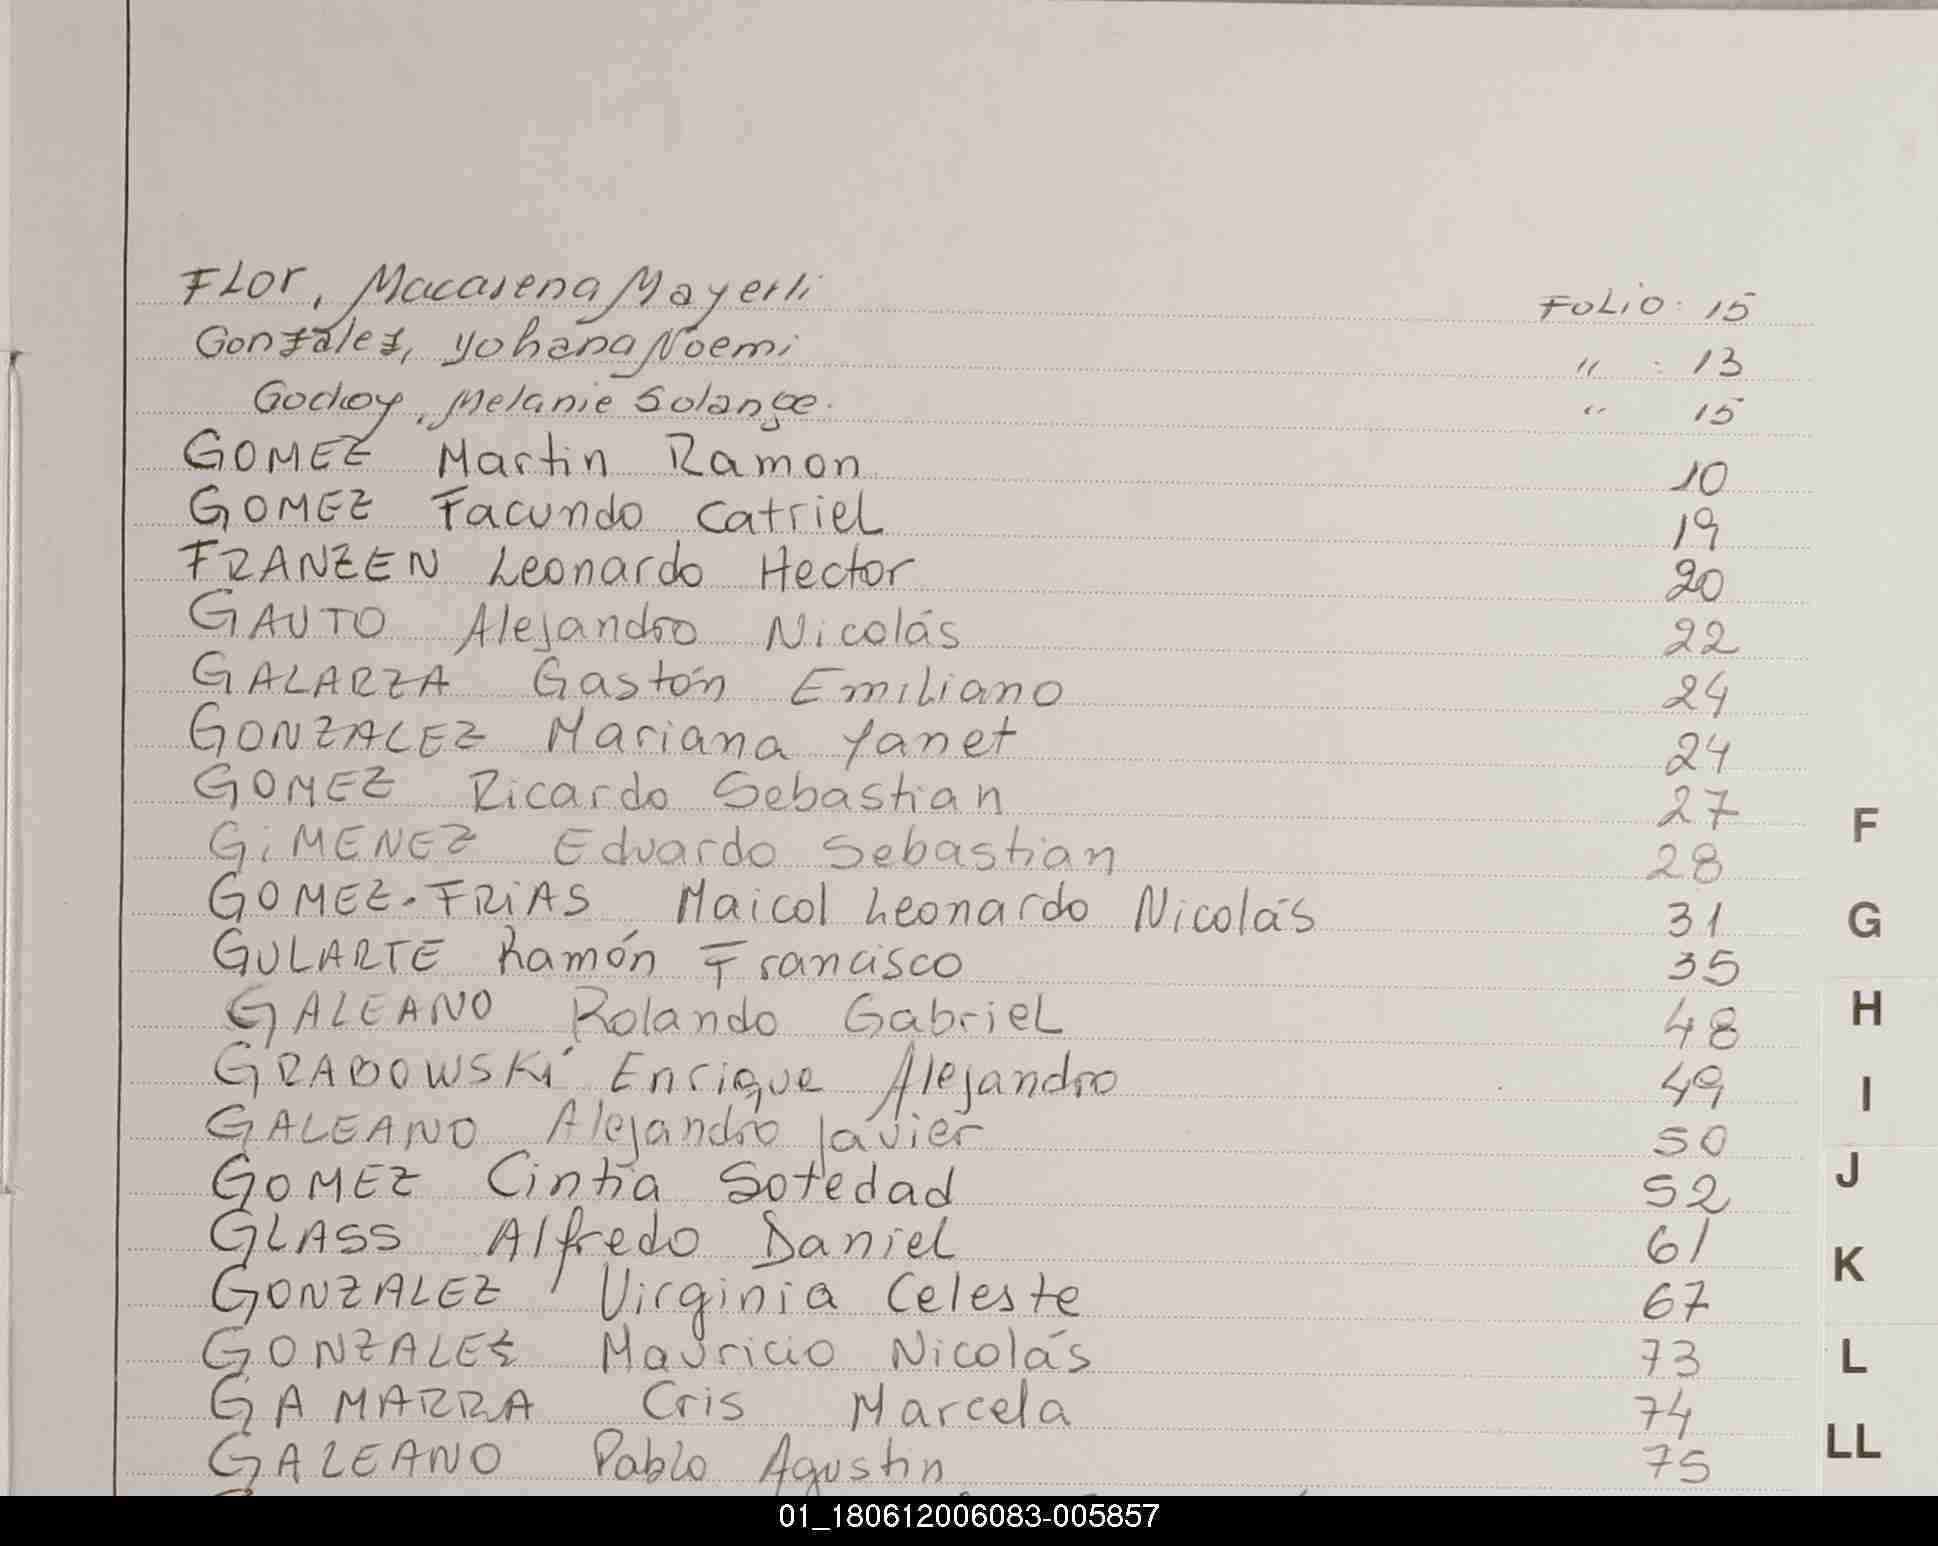 Flor, Macarena Mayerli Folio: 15
Gonzalez, Yohana Noemi " : 13
Godoy, Melanie Solange. " 15
GOMEZ Martin Ramon 10
GOMEZ Facundo Catriel 19
FRANZEN Leonardo Hector 20
GAUTO Alejandro Nicolás 22
GALARZA Gastón Emiliano 24
GONZALEZ Mariana Yanet 24
GOMEZ Ricardo Sebastian 27
GiMENEZ Eduardo Sebastian 28
F
GOMEZ-FRiAS Maicol Leonardo Nicolás 31
G
GULARTE Ramón Francisco 35
GALEANO Rolando Gabriel 48
H
GRABOWSKi Enrique Alejandro 49
I
GALEANO Alejandro Javier 50
GOMEZ Cintia Soledad 52
J
GLASS Alfredo Daniel 61
K
GONZALEZ Virginia Celeste 67
GONZALEZ Mauricio Nicolás 73
L
GAMARRA Cris Marcela 74
GALEANO Pablo Agustin 75
LL
01_180612006083-005857